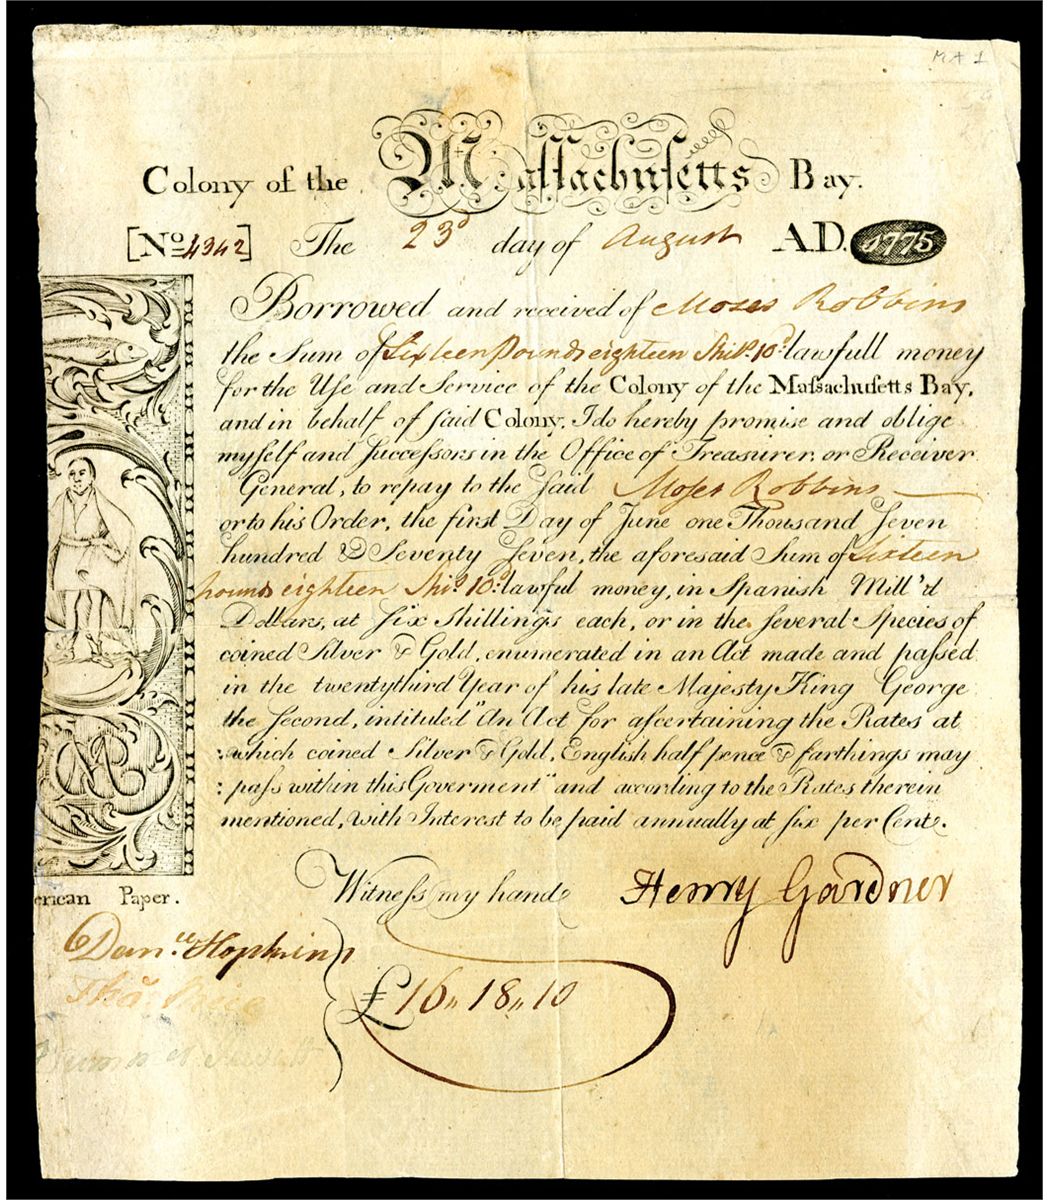 MA 1
Colony of the Massachusetts Bay.
[No. 4342] The 23d day of August A.D. 1775
Borrowed and received of Moses Robbins
the Sum of Sixteen Pounds eighteen Shills. 10d. lawfull money
for the Use and Service of the Colony of the Massachusetts Bay,
and in behalf of said Colony, I do hereby promise and oblige
myself and Successors in the Office of Treasurer or Receiver
General, to repay to the said Moses Robbins
or to his Order, the first Day of June one Thousand Seven
hundred & Seventy Seven, the aforesaid Sum of Sixteen
pounds eighteen Shi.s 10d. lawful money, in Spanish Mill'd
Dollars, at six Shillings each, or in the several Species of
coined Silver & Gold, enumerated in an Act made and passed
in the twentythird Year of his late Majesty King George
the Second, intituled "An Act for ascertaining the Rates at
:which coined Silver & Gold, English half pence & farthings may
:pass within this Goverment" and according to the Rates therein
mentioned, with Interest to be paid annually at six per Cent.
erican Paper.
Witness my hand Henry Gardner
Danll. Hopkins
£16,, 18,, 10